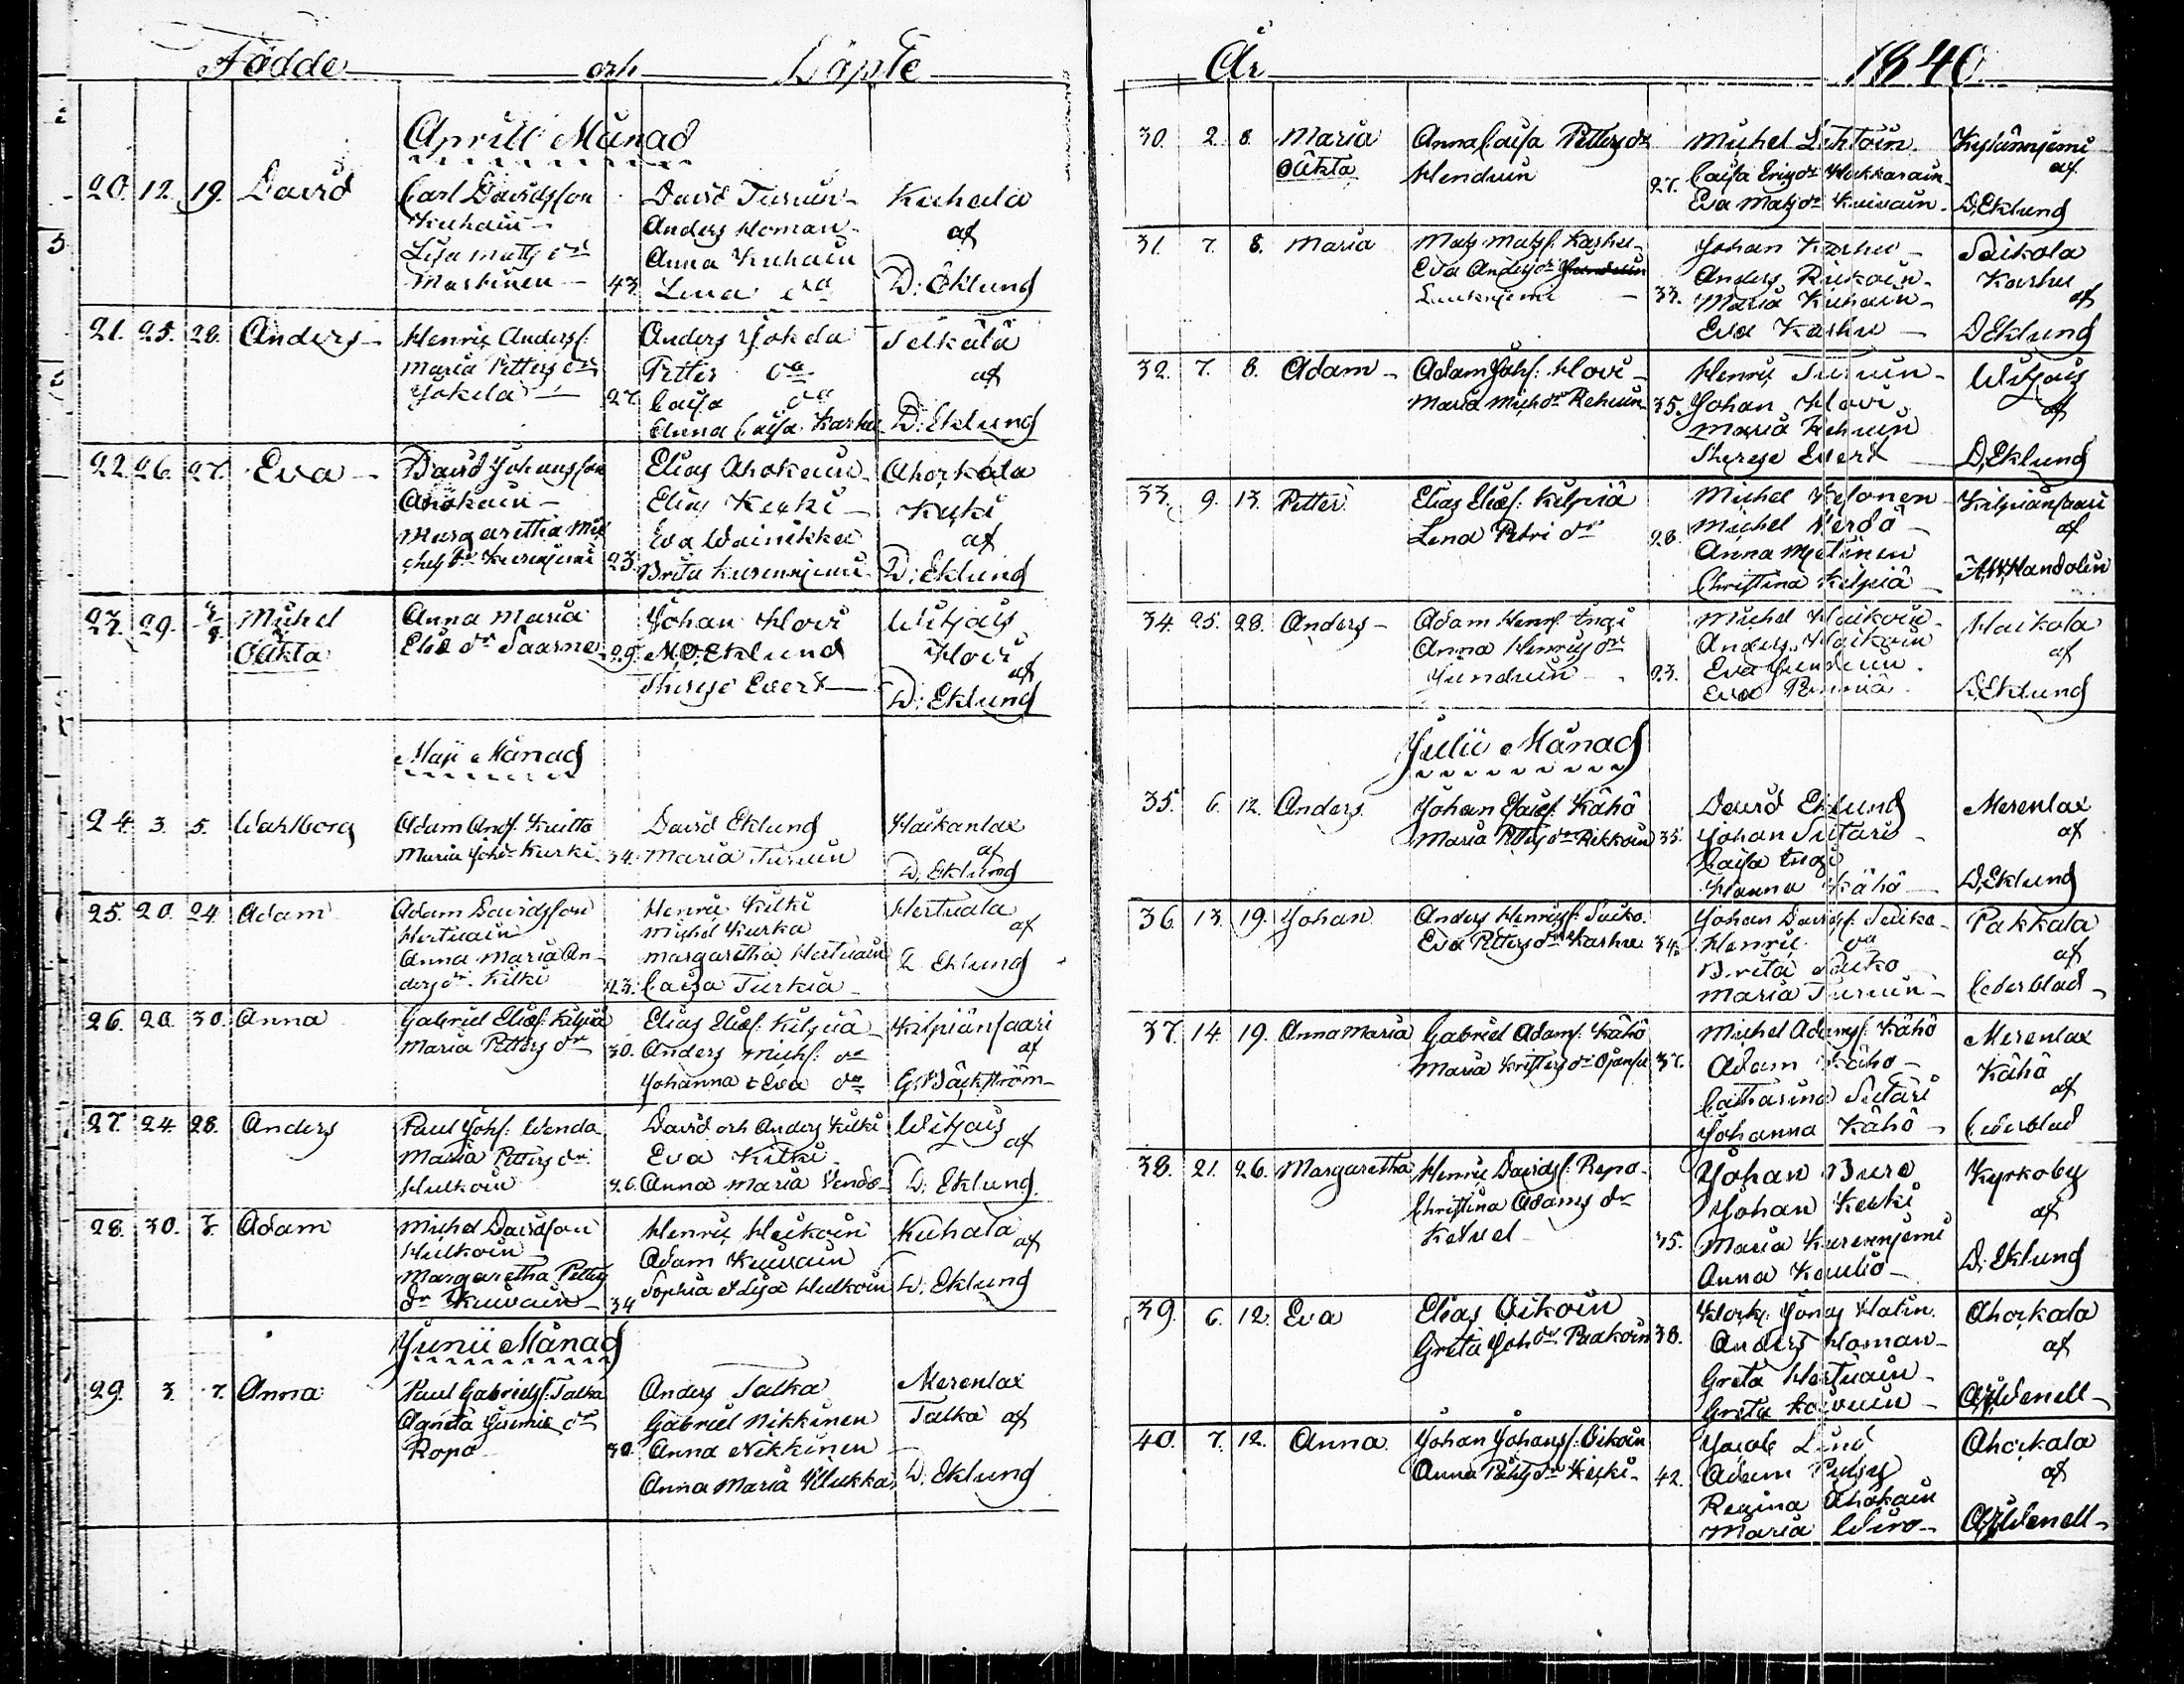 Födde och Döpte
April Månad
20. 12. 19. David
Carl Davidsson
Kuhain
Lisa Matts dr
Martinen 43.
David Turuin
Anders Homan
Anna Kuhain
Lena do
Kuhala
af
D: Eklund
21. 25. 28. Anders
Henric Anderss:
Maria Petters dr
Jokela 27.
Anders Jokela
Petter do
Caisa do
Anna Caisa Karhu
Seikälä
af
D: Eklund
22. 26. 27. Eva
David Johansson
Ahokain
Margaretha Mi
chels dr Kurenjemi 23.
Elias Ahokain
Elias Keski
Eva Wainikka
Brita Kurenjemi
Ahokala
Keski
af
D: Eklund
23. 29. Michel
Oäkta
Anna Maria
Elia dr Saarna 29.
Johan Howi
M. D. Eklund
Therese Evert
Witsais
Howi
af
D: Eklund
Maji Månad
24. 3. 5. Wahlborg
Adam Ands: Kuitto
Maria Joh dr Kurki 34.
David Eklund
Maria Turuin
Haikanlax
af
D. Eklund
25. 20. 24. Adam
Adam Davidsson
Hertuain
Anna Maria An-
ders dr Kilki 23.
Henric Kilki
Michel Kurka
Margaretha Hertuain
Caisa Turkia
Hertuala
af
D Eklund
26. 20. 30. Anna
Gabriel Elias: Kilpiä
Maria Petters dr 30.
Elias Elias: Kilpiä
Anders Michs: do
Johanna & Eva do
Kilpiänsaari
af
G. Bäckström
27. 24. 28. Anders
Paul Johs: Wenda
Maria Petters dr
Hulkoin 26.
David och Anders Kilki
Eva Kilki
Anna Maria Vendo
Witsais
af
D. Eklund
28. 30. Adam
Michel Davidson
Hulkoin
Margaretha Petters
dr Kuivain 34
Henric Heikoin
Adam Kuivain
Sophia & Lisa Hulkoin
Kuhala af
D. Eklund
Junii Månad
29. 3. 7. Anna
Paul Gabriels: Talka
Agneta dr
Ropo 30.
Anders Talka
Gabriel Nikkinen
Anna Nikkinen
Anna Maria Hukka
Merenlax
Talka af
D. Eklund
År 1840
30. 2. 8. Maria
Oäkta
Anna Caisa Petters dr
Henduin 27.
Michel Lehtoin
Caisa Erics dr Hukkarain
Eva Mats dr Kuivain
af
D. Eklund
31. 7. 8. Maria
Mats Mats: Karhu
Eva Anders dr
33.
Johan Karhu
Anders Riikoin
Maria Kuhain
Eva Karhu
Seikola
Karhu
af
D Eklund
32. 7. 8. Adam
Adam Johs: Howi
Maria Mich dr Rehuin 35.
Henric Turuin
Johan Howi
Maria Rehuin
Therese Evert
Witsais
af
D. Eklund
33. 9. 13. Petter
Elias Elias: Kilpiä
Lena Petri dr 28.
Michel Kelonen
Michel Werdo
Anna Metinen
Christina Kilpiä
Kilpiänsaari
af
A. W. Handolin
34. 25. 28. Anders
Adam Henr: Engi
Anna Henrics dr
23.
Michel Haikoin
Anders Haikoin
Eva
Eva
Haikola
af
D. Eklund
Julii Månad
35. 6. 12. Anders
Johan Elias: Kähö
Maria Petters dr Rikkoin 35.
David Eklund
Johan Sutari
Caisa Engi
Hanna Kähö
Merenlax
af
D. Eklund
36. 13. 19. Johan
Anders Henrics: Suiko
Eva Petters dr Karhu 34.
Johan Davids: Suiko
Henric do
Brita Suiko
Maria Turuin
Pakkala
af
Cederblad
37. 14. 19. Anna Maria
Gabriel Adams: Kähö
Maria Kristers dr Ojansu 37.
Michel Adams: Kähö
Adam Kähö
Catharina Sutari
Johanna Kähö
Merenlax
Kähö
af
Cederblad
38. 21. 26. Margaretha
Henric Davids: Repo
Christina Adams dr
Ketuel 35.
Johan Buro
Johan Keski
Maria Kurenjemi
Anna Kaulio
Kyrkoby
af
D. Eklund
39. 6. 12. Eva
Elias Oikoin
Greta Joh dr Paakoin 38.
Klock: Jonas Malin
Anders Homan
Greta Hertuain
Greta
Ahokala
af
Wenell
40. 7. 12. Anna
Johan Johans: Oikoin
Anna Petters dr Keski 42.
Jacob Lind
Adam
Regina Ahokain
Maria Wiro
Ahokala
af
Wenell